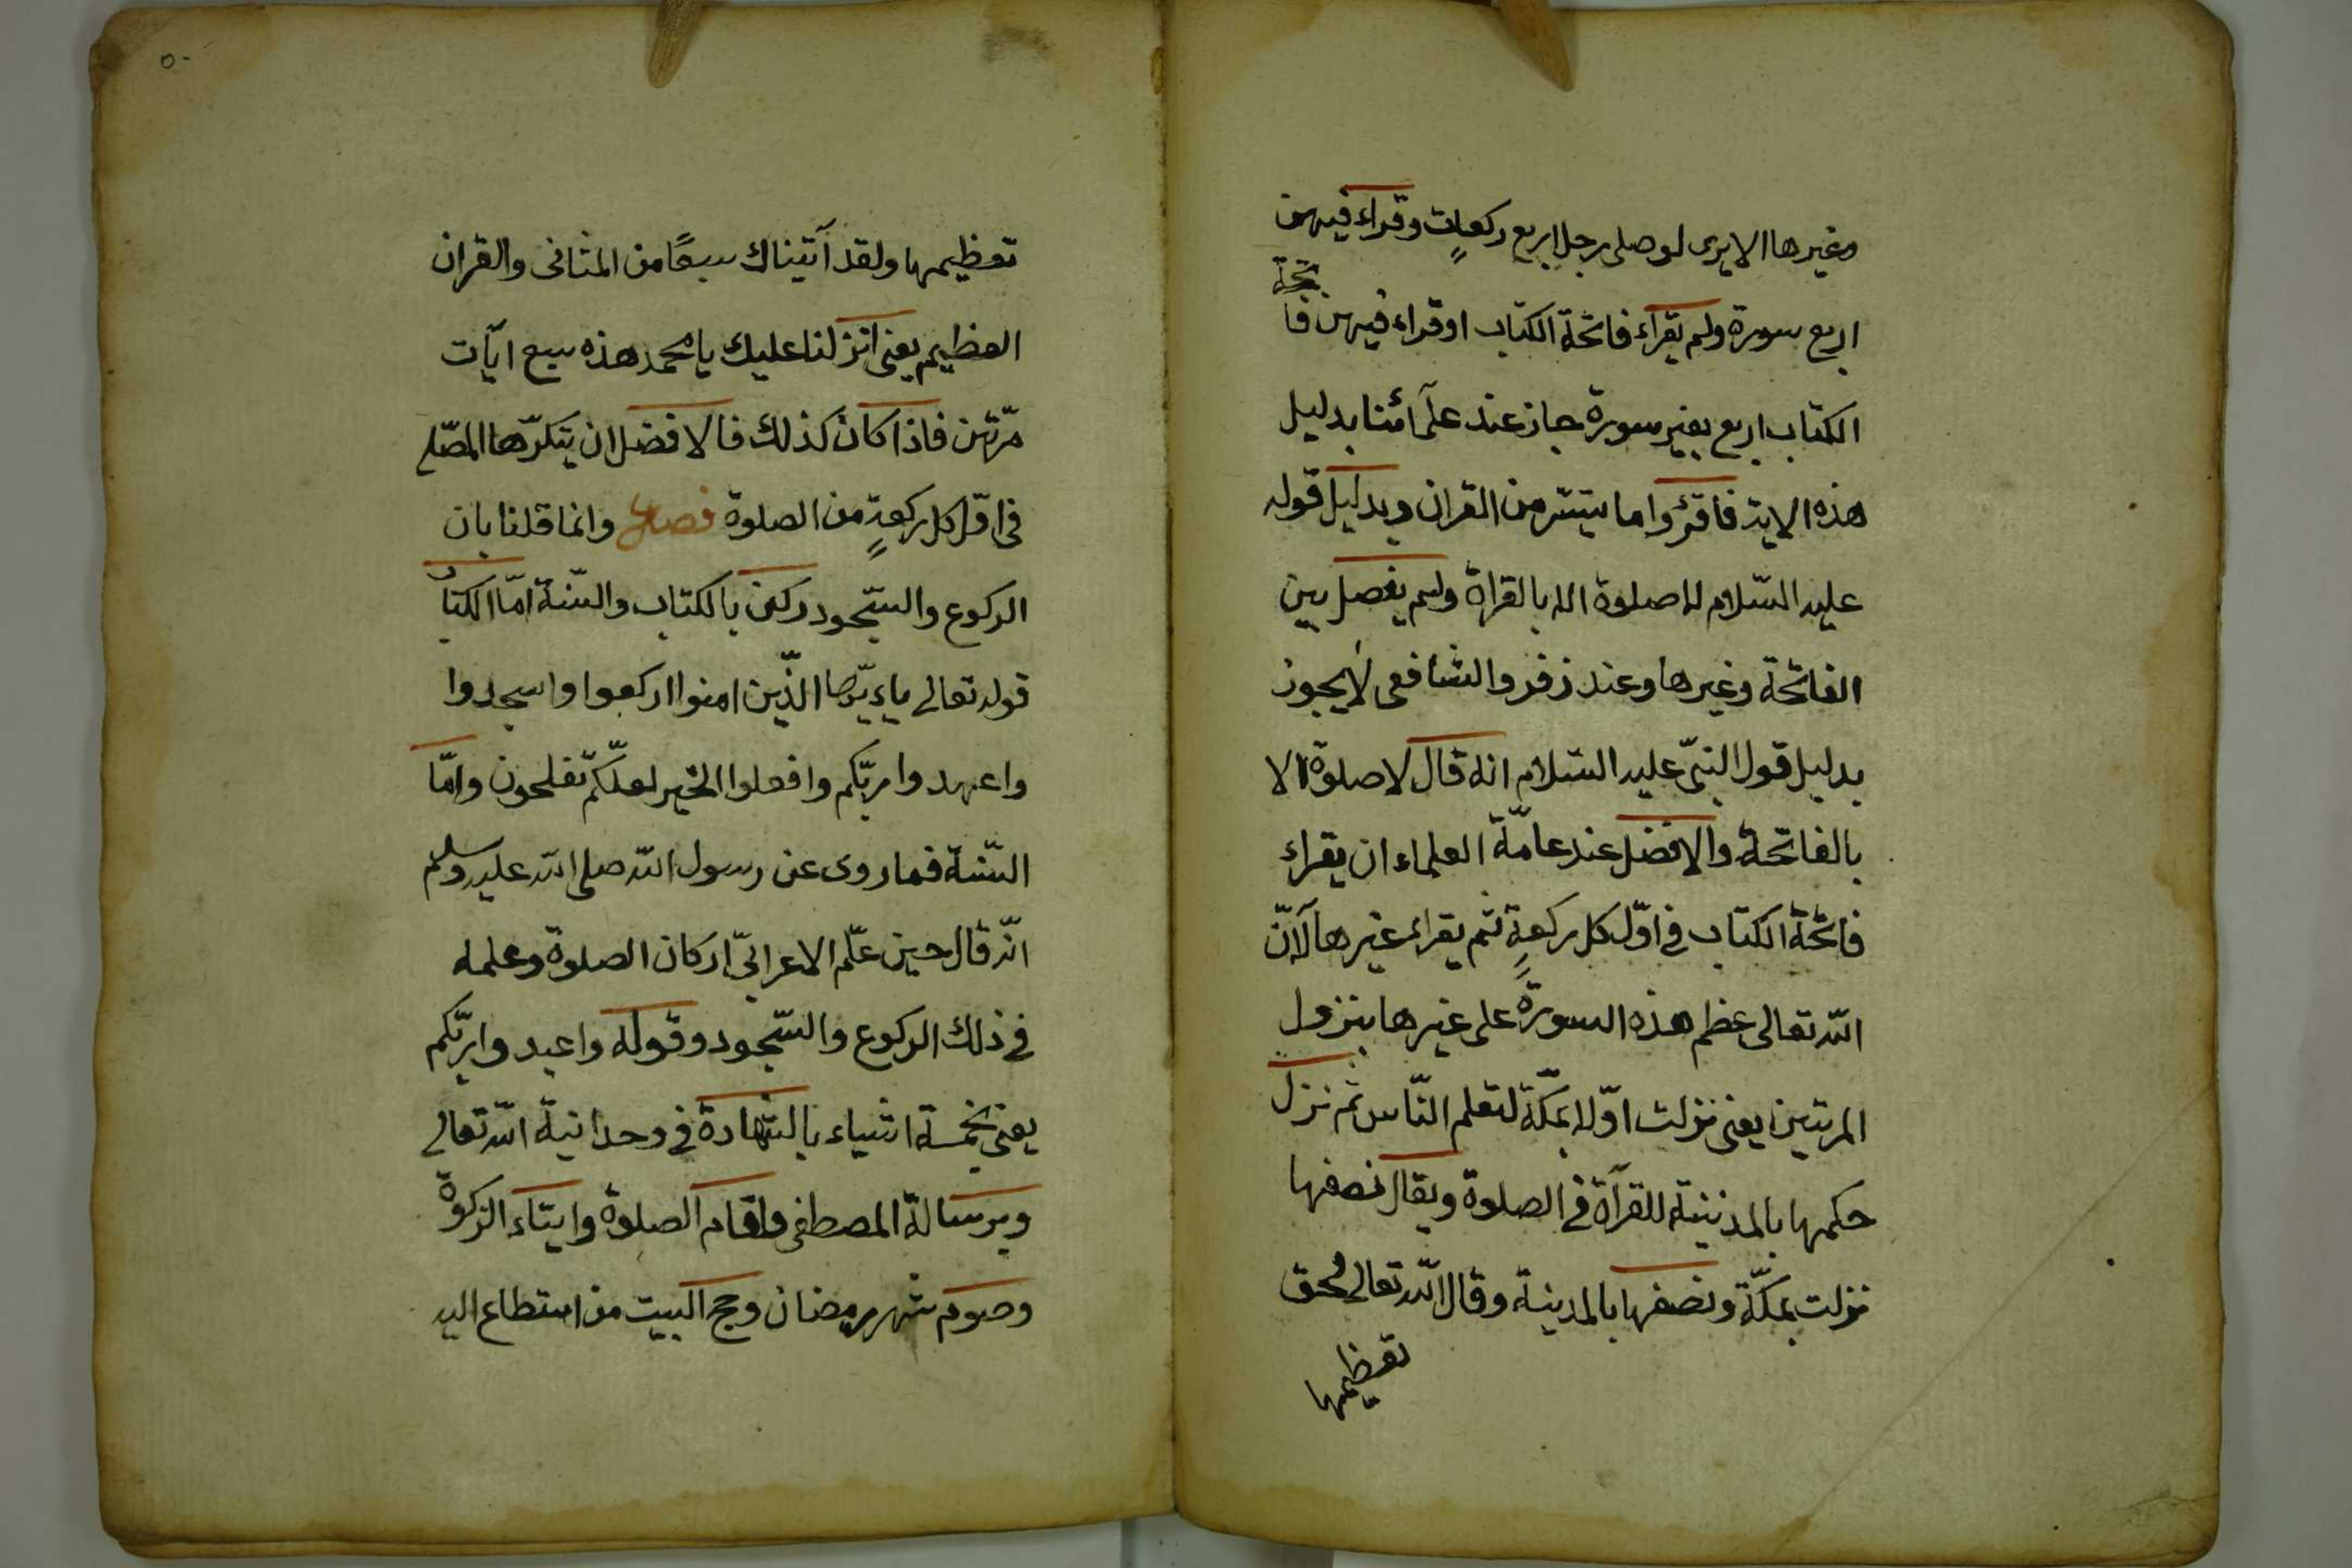 وغيرها الا يرى لو صلى رجل اربع ركعات وقراء فيهن
اربع سورة ولم يقراء فاتحة الكتاب او قراء فيهن فاتحة
الكتاب اربع بغير سورة جاز عند علمآئنا بدليل
هذه الاية فاقرؤا ما تيسّر من القران وبدليل قوله
عليه السّلام لا صلوة الا بالقراة ولم يفصل بين
الفاتحة وغيرها وعند زفر والشافعى لا يجوز
بدليل قول النبىّ عليه السّلام انه قال لا صلوة الا
بالفاتحة والافضل عند عامّة العلماء ان يقراء
فاتحة الكتاب فى اوّل كل ركعةٍ ثم يقراء غيرها لآنّ
اللّه تعالى عظم هذه السورة على غيرها بنزول
المرتين يعنى نزلت اوّلا بمكّة لتعلم النّاس ثم نزل
حكمها بالمدينة للقرآة فى الصلوة ويقال نصفها
نزلت بمكّة ونصفها بالمدينة وقال اللّه تعالى لحق
تعظيمها
٥٠
تعظيمها ولقد آتيناك سبعًا من المثانى والقران
العظيم يعنى انزلنا عليك يا محمد هذه سبع ايآت
مرّتين فاذا كان كذلك فالافضل ان يتكرّها المصّلى
فى اوّل كل ركعةٍ من الصلوة فصل وانما قلنا بان
الركوع والسّجود ركن بالكتاب والسّنة امّا الكتاب
قوله تعالى ياءيّها الذّين امنوا اركعوا واسجدوا
واعبدوا ربّكم وافعلوا الخير لعلّكم تفلحون وامّا
السّنة فما روى عن رسول اللّه صلى اللّه عليه وسلم
انّه قال حين علّم الاعرابىّ اركان الصلوة وعلمه
فى ذلك الركوع والسّجود وقوله واعبدوا ربّكم
يعنى بخمسة اشياء بالشّهادة فى وحدانية اللّه تعالى
وبرسالة المصطفى واقام الصلوة وايتاء الزكوة
وصوم شهر رمضان وحج البيت من استطاع اليه